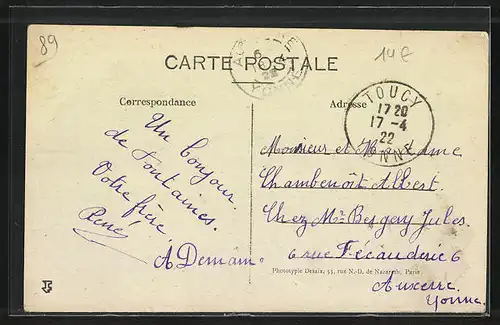 89
14€
CARTE POSTALE
Correspondance
Adresse
TOUCY
17 20
17 - 4
22
YONNE
6
22
YONNE
Un bonjour
de Fontaines.
Votre frère
René
A Demain
Monsieur et Madame
Chambenoît Albert.
Chez Mr Bergery Jules.
6 rue Fécauderie 6
Auxerre
Yonne.
Phototypie Desaix, 55, rue N.-D. de Nazareth, Paris